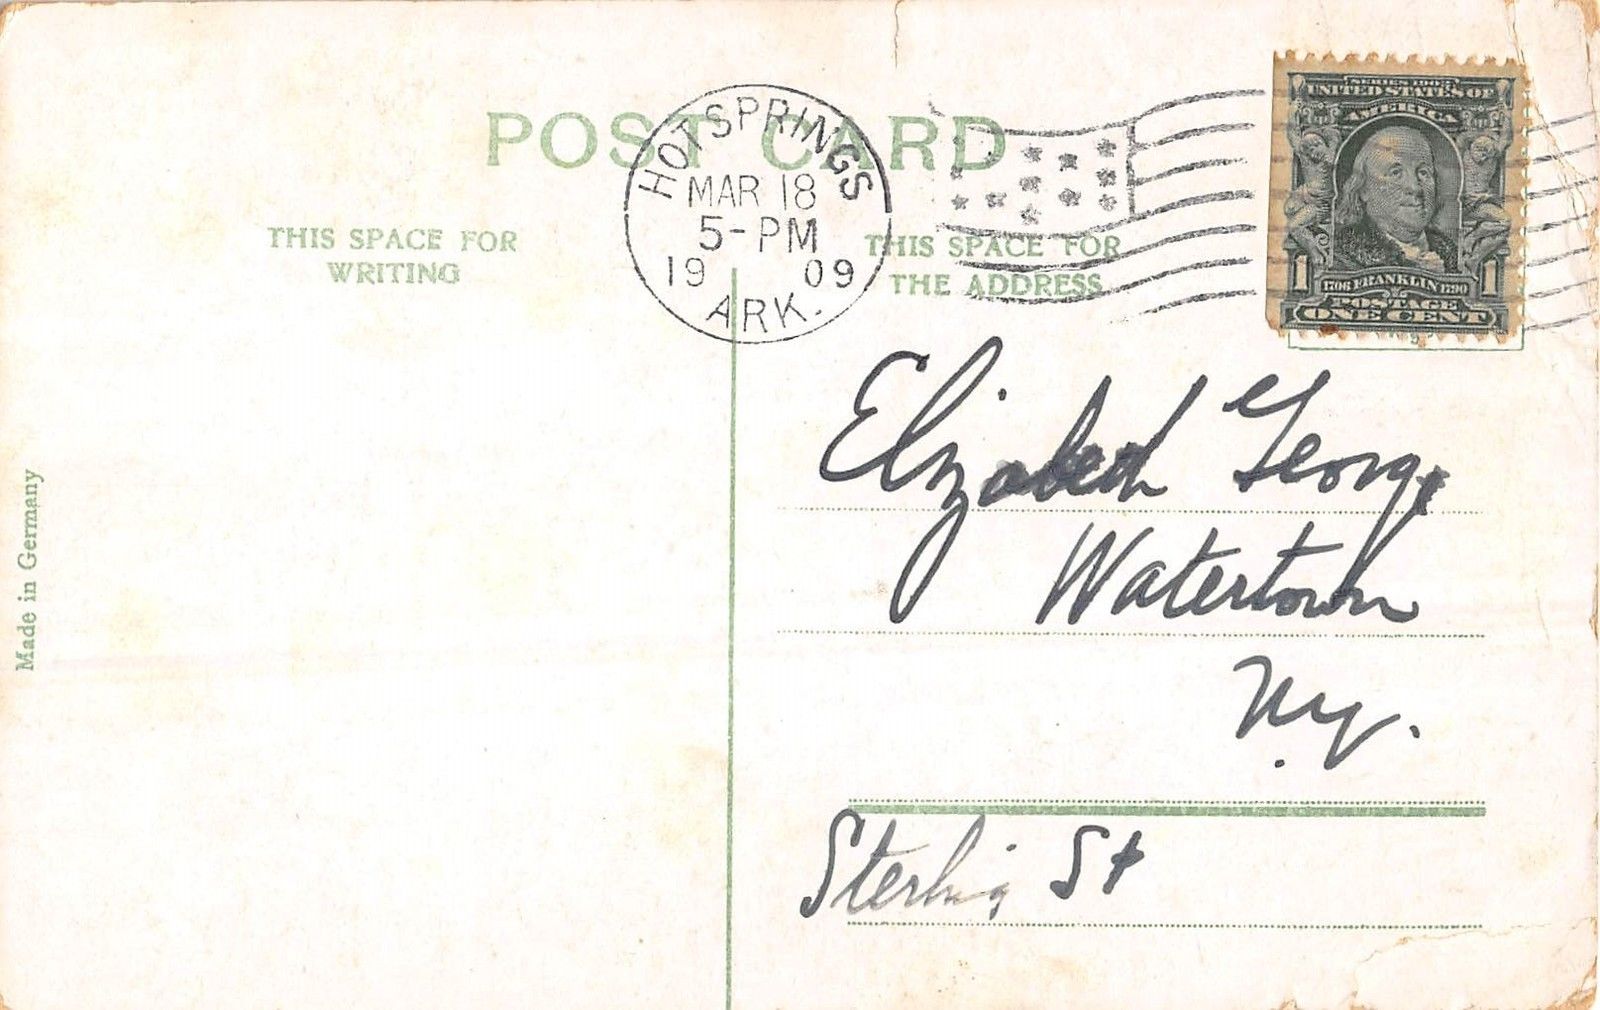 POST CARD
HOT SPRINGS
MAR 18
5-PM
19 09
ARK.
SERIES 1902
UNITED STATES OF
AMERICA
1 1706 FRANKLIN 1790 1
POSTAGE
ONE CENT
THIS SPACE FOR
WRITING
THIS SPACE FOR
THE ADDRESS
Elizabeth George
Watertown
N.Y.
Sterling St
Made in Germany